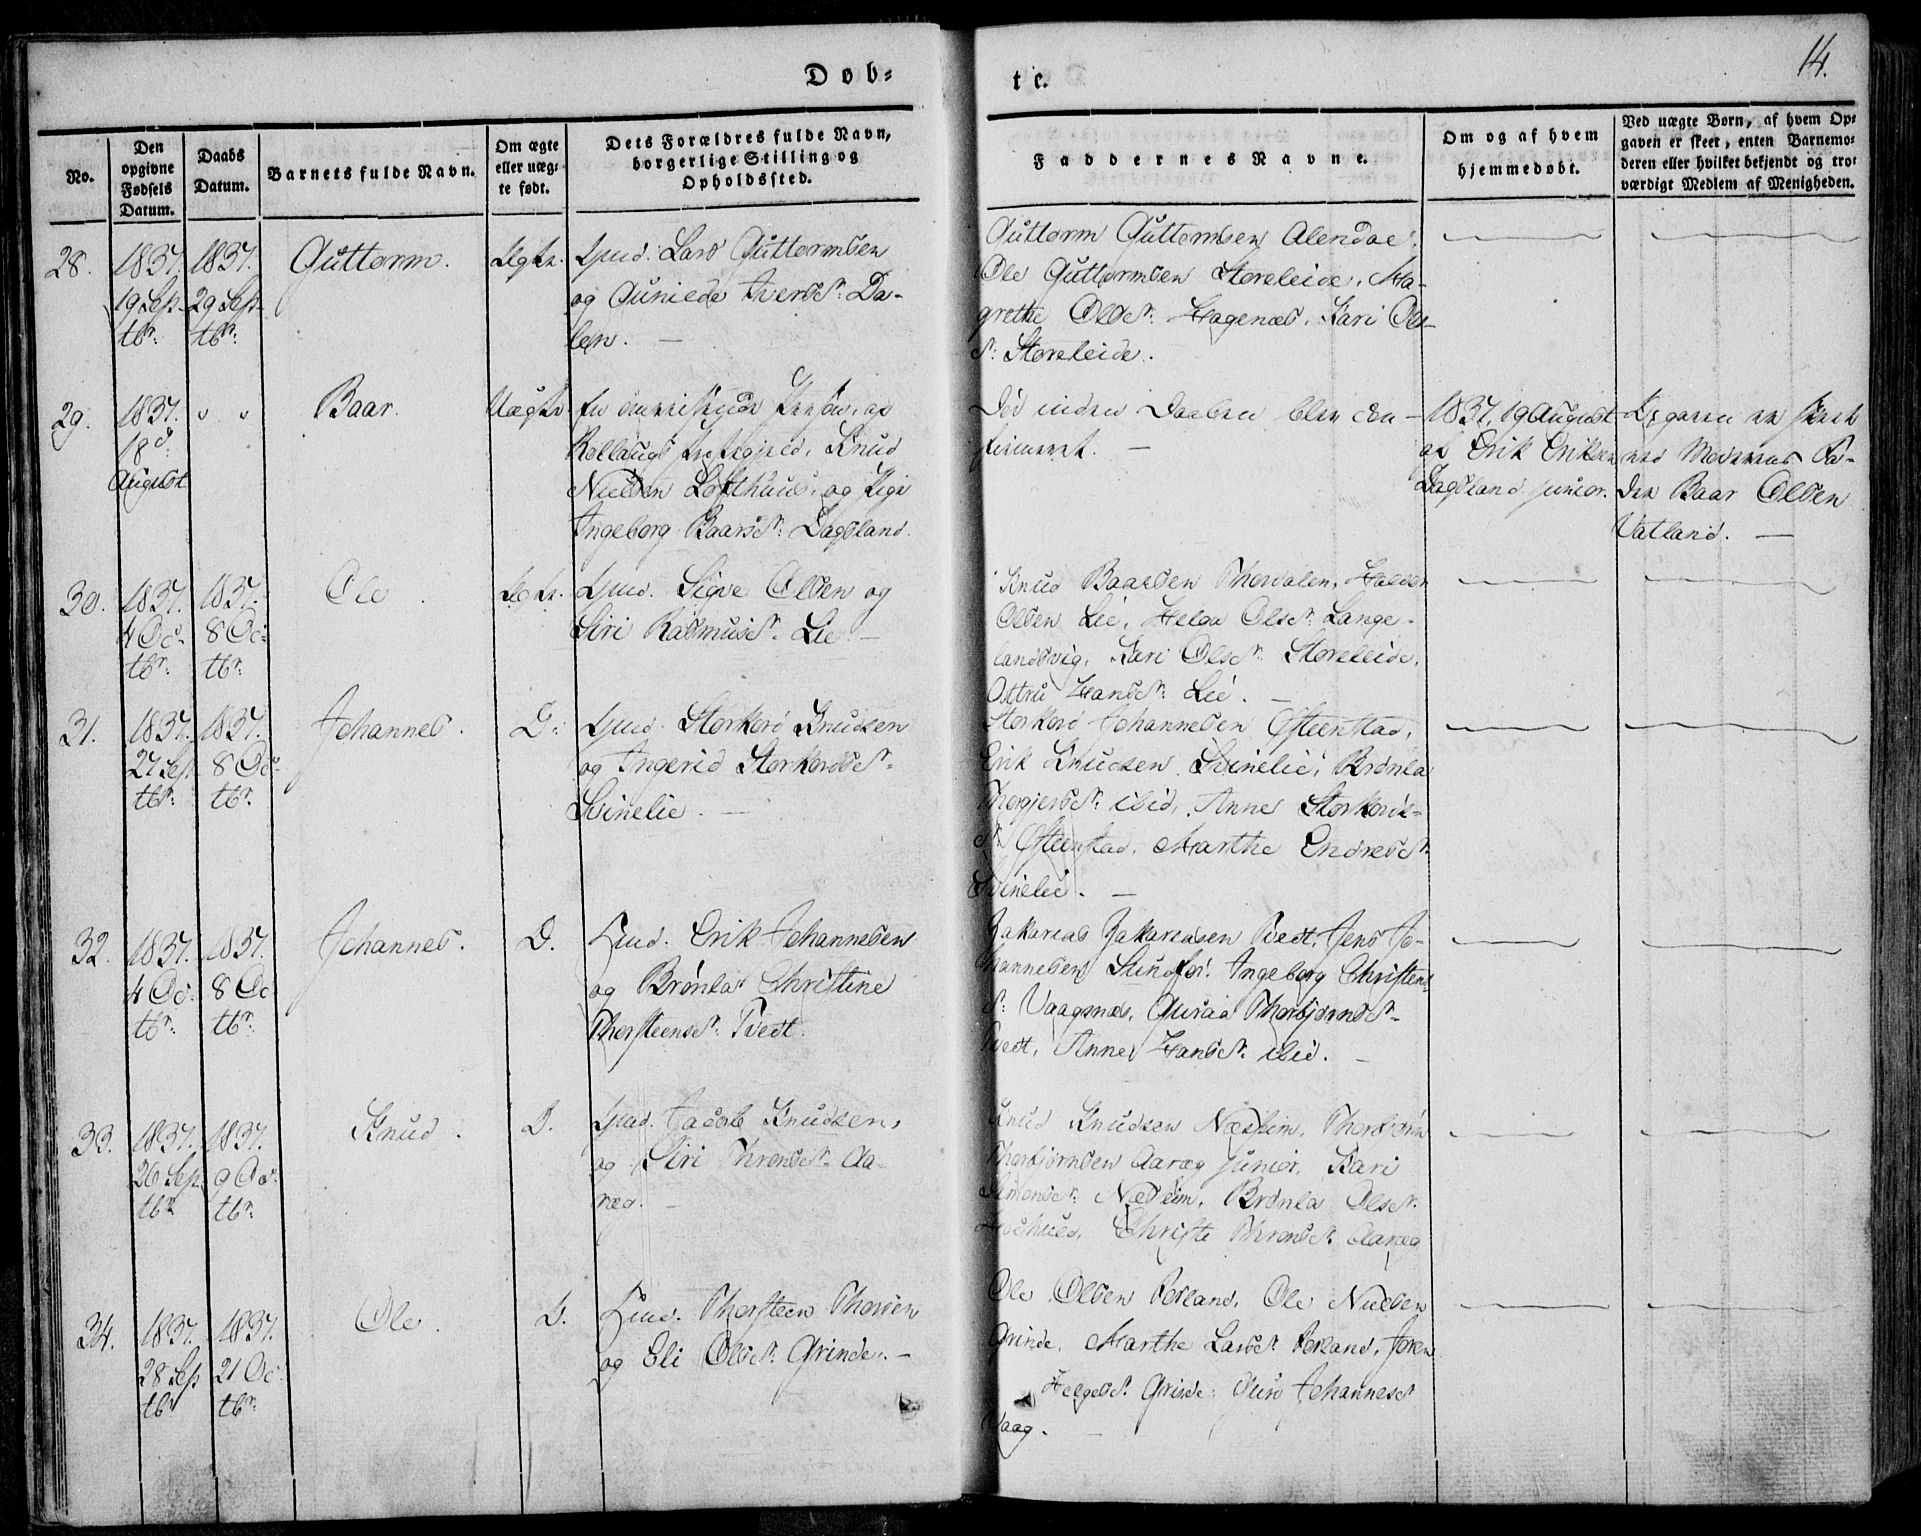 Døb-
te.
14.
No.
Den
opgivne
Fødsels
Datum.
Daabs
Datum.
Barnets fulde Navn.
Om ægte
eller uæg-
te født.
Dets Forældres fulde Navn,
borgerlige Stilling og
Opholdssted.
Faddernes Navne.
Om og af hvem
hjemmedøbt.
Ved uægte Børn, af hvem Op-
gaven er skeet, enten Barnemo-
deren eller hvilket bekjendt og tro-
værdigt Medlem af Menigheden.
28.
1837.
19 Sep-
tbr.
1837.
29 Sep-
tbr.
Guttorm.
Ægte.
Gmd. Lars Guttormsen
og Guniede Iversdr. Da-
len.
Guttorm Guttormsen Alendae,
Ole Guttormsen Storeleide, Ma-
grethe Olsdr. Hagenæs, Kari Ols-
dr. Storeleide.
29.
1837.
18de
August
" "
Baar.
Uægte.
Nielsen Lofthuus, og Pige
Ingeborg Baarsdr. Dagsland.
Død inden Daaben blev con-
firmeret.
1837, 19 August
af Erik Eriksen
Dagsland junior.
Opgaven er skeet
ved Moderens Fa-
der Baar Olsen
Vatland.
30.
1837.
4 Oc-
tbr.
1837.
8 Oc-
tbr.
Ole.
Ægte.
Gmd. Sigve Olsen og
Siri Rasmusdr. Lie
Knud Baarsen Thordalen, Halvor
Olsen Lie, Helga Olsdr. Lange-
landsvig, Kari Olsdr. Storeleide,
Hansdr. Lie.
31.
1837.
27 Sep
tbr.
1837.
8 Oc-
tbr.
Johannes.
D.
Gmd. Storkord Knudsen
og Ingerid Storkordsdr.
Svinelie.
Storkord Johannesen Østenstad,
Erik Knudsen Svinelie, Brønla
ibid, Anne Storkords-
dr. Østenstad, Marthe Endresdr.
Svinelie.
32.
1837.
4 Oc-
tbr.
1837.
8 Oc
tbr.
Johannes.
D.
Gmd. Erik Johannesen
og Brønla Christine
Thorsteensdr. Tvedt.
Zakarias Zakariasen Tvedt, Jens Jo-
hannesen Sundfør, Ingeborg Christens-
dr. Vaagsnæs, Guroa Thorbjørnsdr.
Tvedt, Anne Hansdr. ibid.
33.
1837.
26 Sep-
tbr.
1837.
9 Oc-
tbr.
Knud.
D.
Gmd. Jacob Knudsen,
og Siri Thronsdr. Aa-
ræg.
Knud Knudsen Næsheim, Thorbjørn
Thorbjørnsen Aaræg junior, Kari
Simonsdr. Næsheim, Brønla Olsdr.
Christi Thronsdr. Aaræg
34.
1837.
28 Sep
tbr
1837.
21 Oc-
tbr.
Ole.
D.
Gmd. Thorsteen Thorsen
og Eli Olsdr. Grinde.
Ole OlsenØrland, Ole Nielsen
Grinde, Marthe Larsdr. Ørland, Joren
Helgesdr. Grinde, Guro Johannesdr
Vaag.